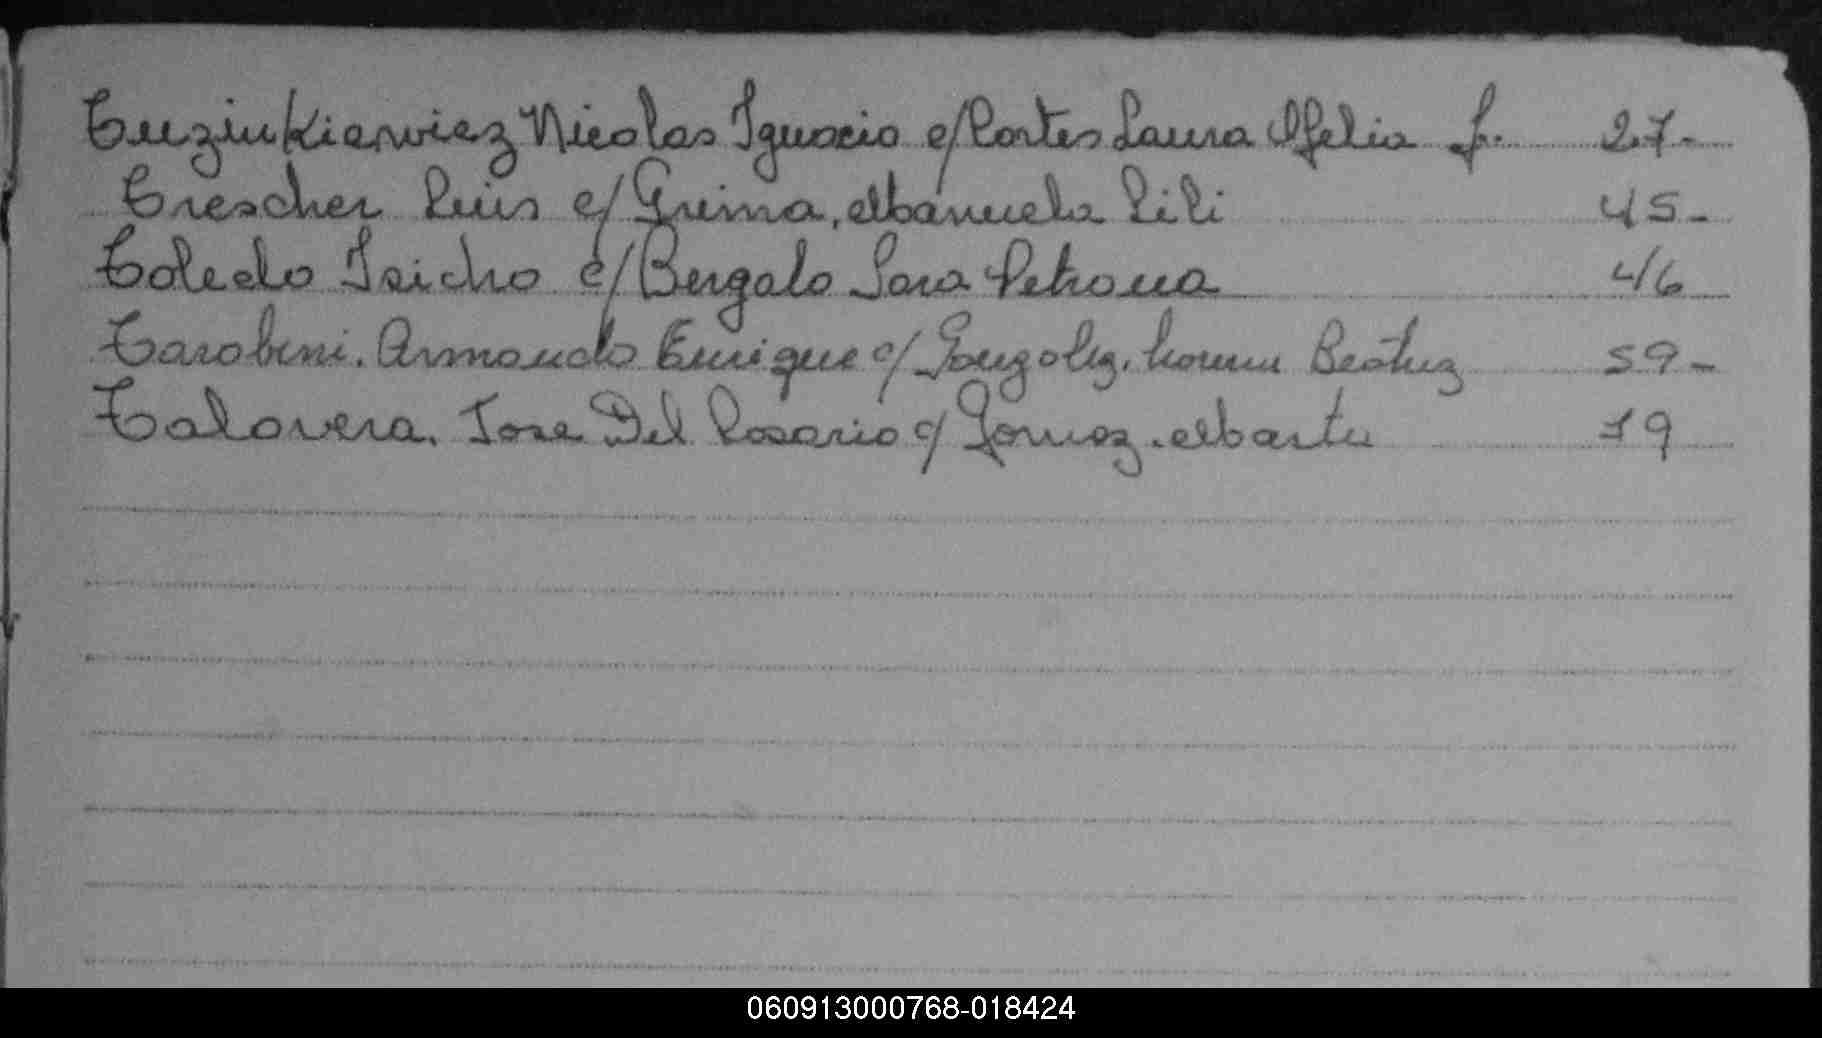 Tuzinkiewiez Nicolas Ignacio c/ Cortes Laura Ofelia f. 27-
Trescher Luis c/ Grima, Manuela Lili 45-
Toledo Isidro c/ Bergalo Sara Petrona 46
Tarobini. Armando Enrique c/ Gonzalez. Beatriz 59-
Talavera. Jose Del Rosario c/ Gomez. Marta 79
060913000768-018424